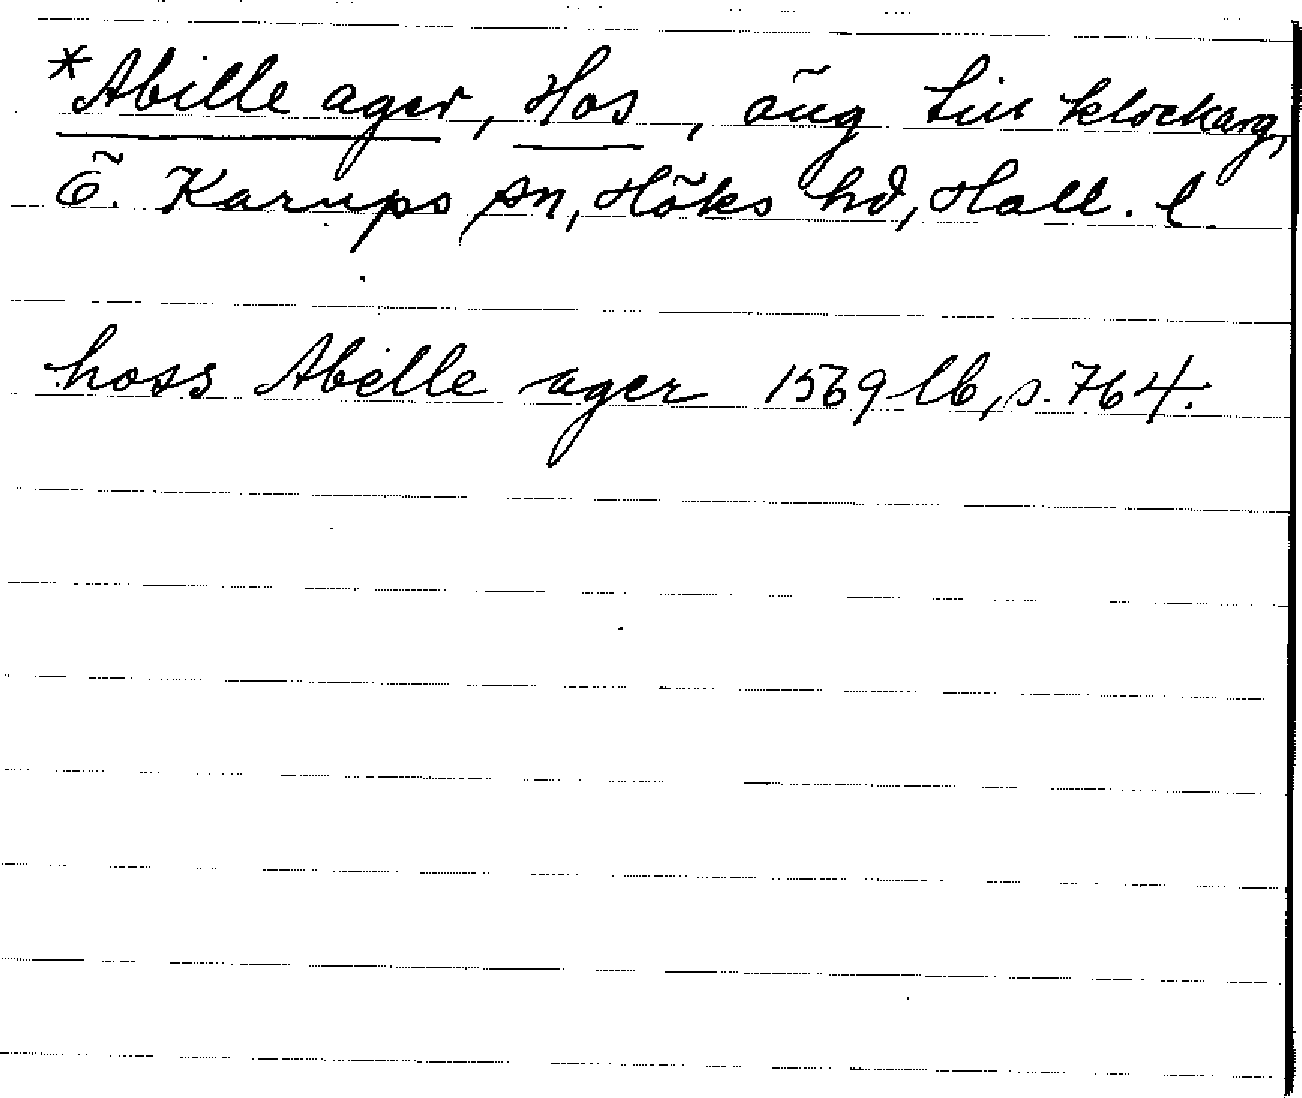 *Abille ager, Hos, äng till klockarg,
Ö. Karups sn, Höks hd, Hall. l.
hoss Abelle ager 1569 lb, s. 764.